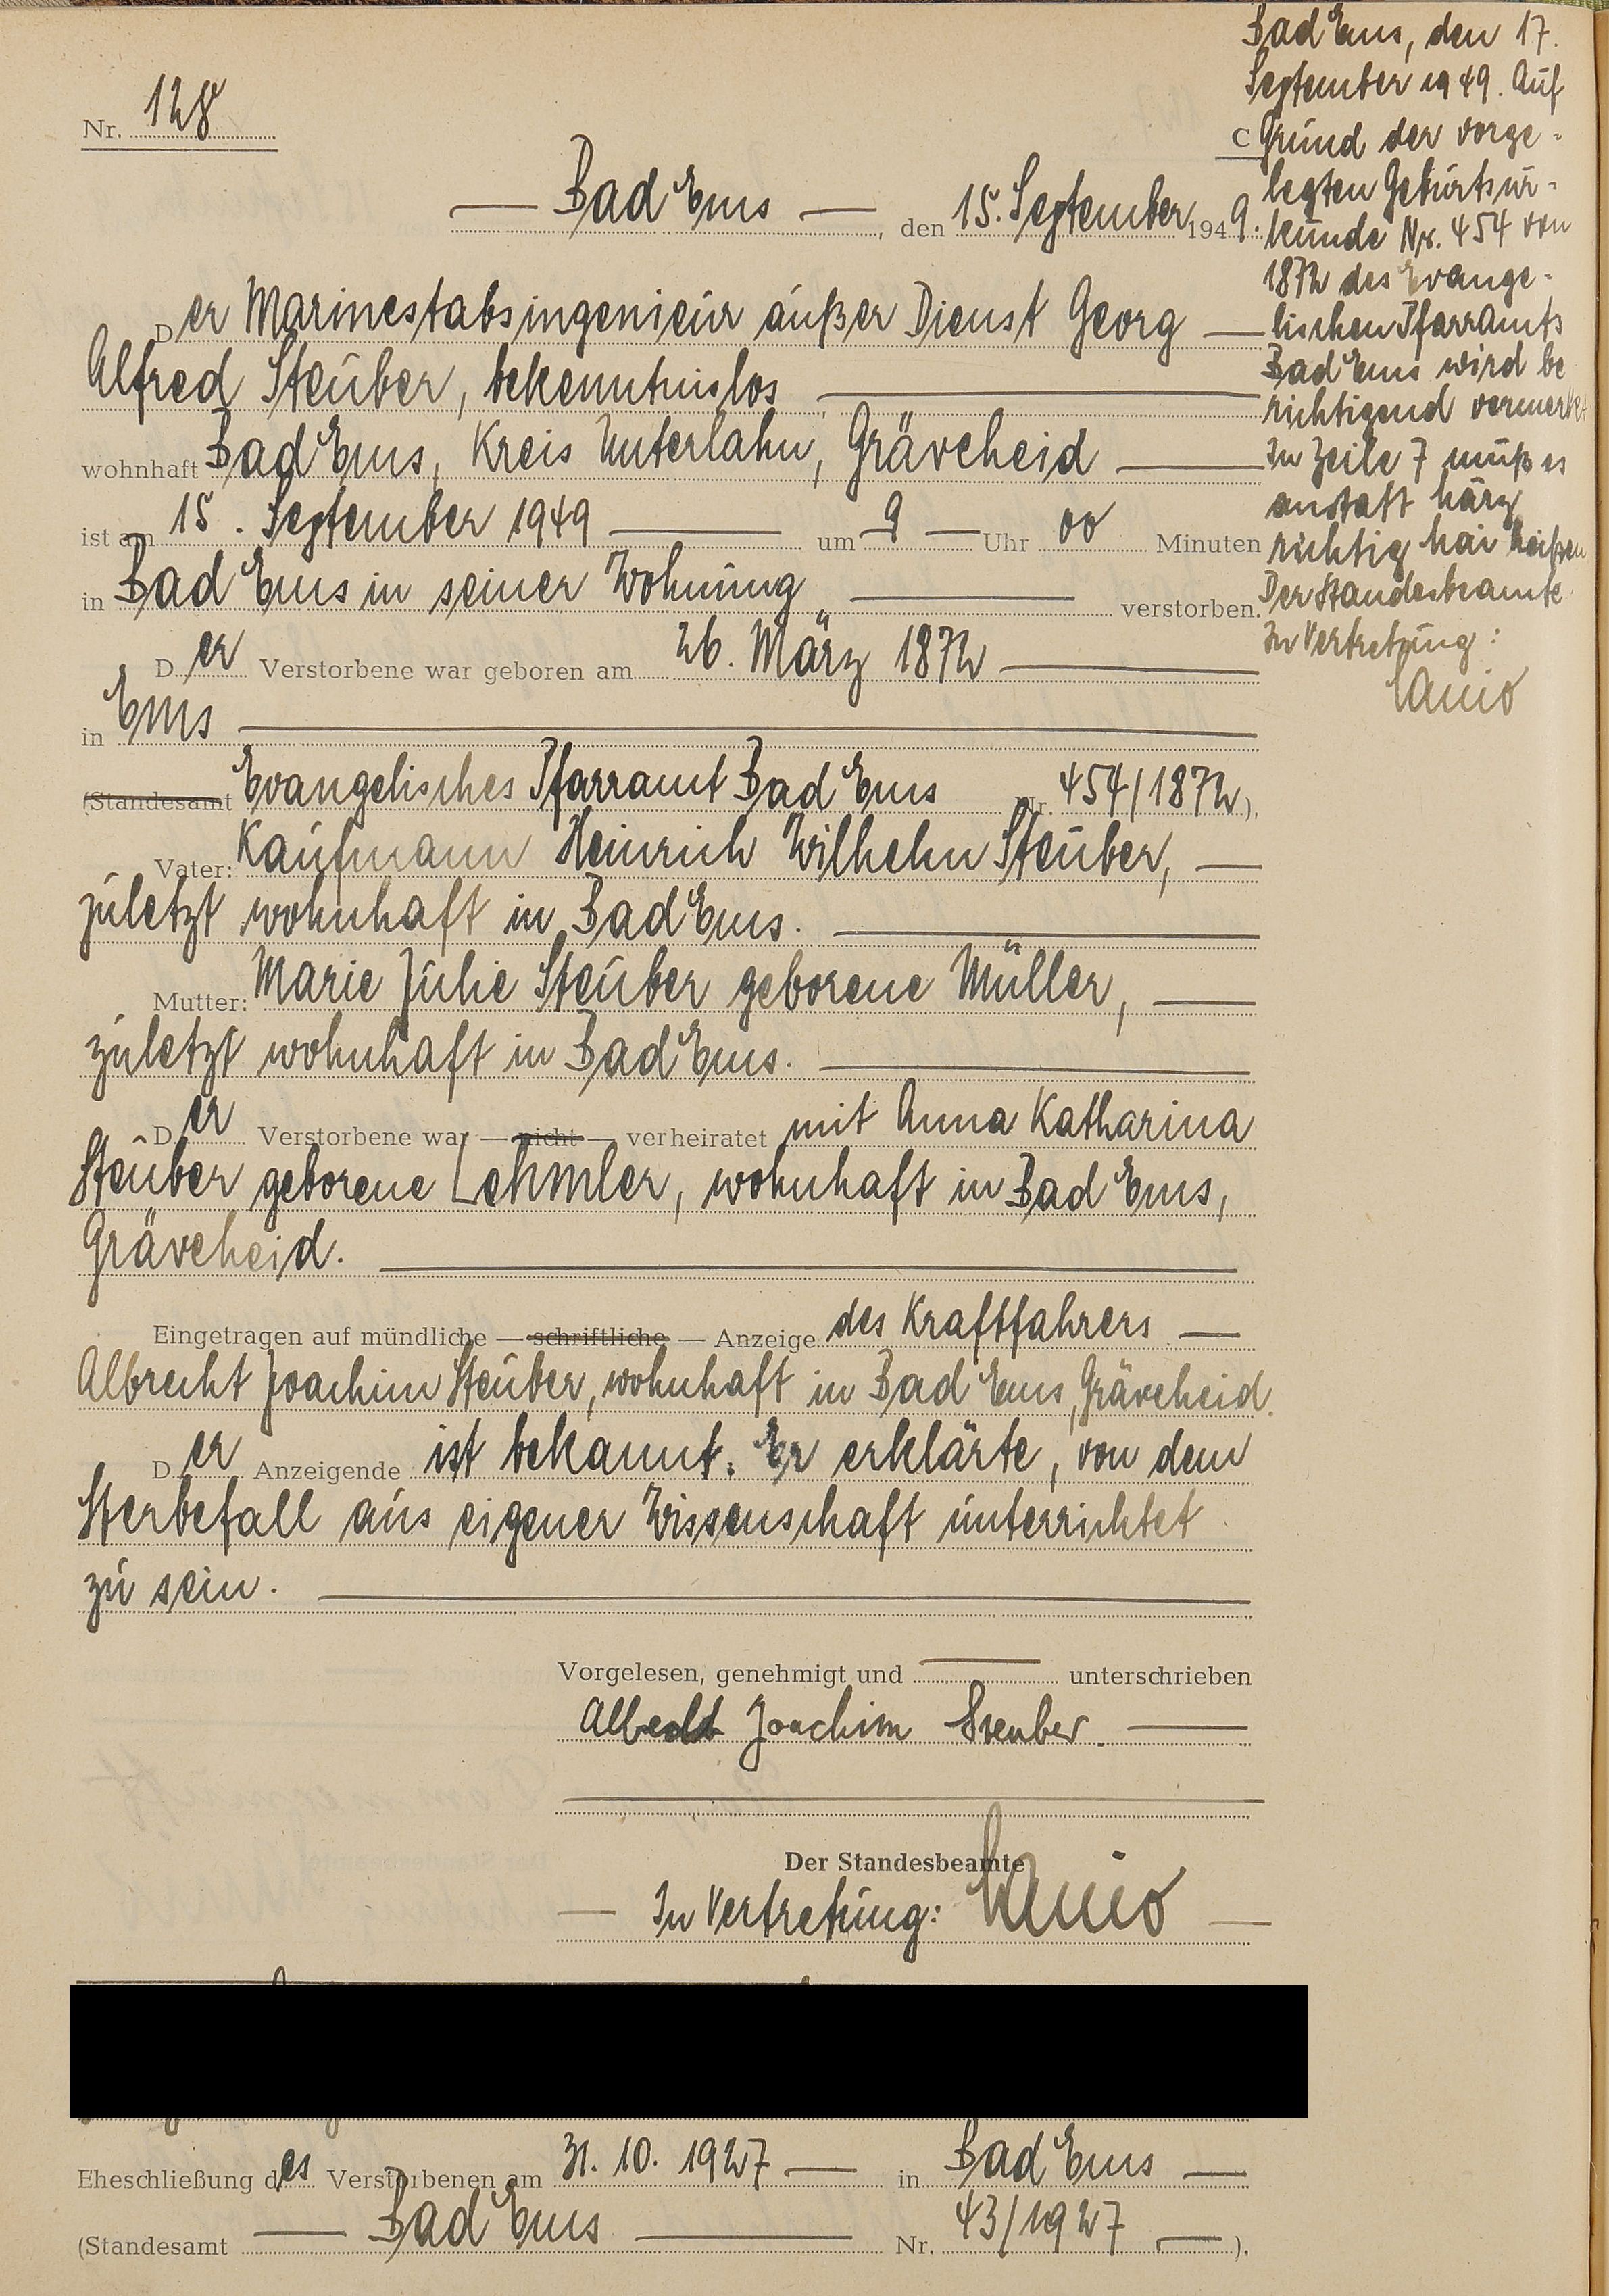 Nr. 128
C
Bad Ems, den 15. September 1949.
Der Marinestabsingenieur außer Dienst Georg
Alfred Steuber, bekenntnislos
wohnhaft Bad Ems, Kreis Unterlahn, Gräveheid
ist am 15. September 1949 um 9 Uhr 00 Minuten
in Bad Ems in seiner Wohnung verstorben.
Der Verstorbene war geboren am 26. März 1872
in Ems
(Standesamt Evangelisches Pfarramt Bad Ems Nr. 454/1872).
Vater: Kaufmann Heinrich Wilhelm Steuber,
zuletzt wohnhaft in Bad Ems.
Mutter: Marie Julie Steuber geborene Müller,
zuletzt wohnhaft in Bad Ems.
Der Verstorbene war — nicht — verheiratet mit Anna Katharina
Steuber geborene Lehmler, wohnhaft in Bad Ems,
Gräveheid.
Eingetragen auf mündliche — schriftliche — Anzeige des Kraftfahrers
Albrecht Joachim Steuber, wohnhaft in Bad Ems, Gräveheid.
Der Anzeigende ist bekannt. Er erklärte, von dem
Sterbefall aus eigener Wissenschaft unterrichtet
zu sein.
Vorgelesen, genehmigt und unterschrieben
Albrecht Joachim Steuber.
Der Standesbeamte
In Vertretung:
Eheschließung des Verstorbenen am 31. 10. 1927 in Bad Ems
(Standesamt Bad Ems Nr. 43/1927).
Bad Ems, den 17.
September 1949. Auf
Grund der vorge-
legten Geburtsur-
kunde Nr. 454 von
1872 des Evange-
lischen Pfarramts
Bad Ems wird be
richtigend vermerkt
In Zeile 7 muß es
anstatt März
richtig Mai heißen
Der Standesbeamte
In Vertretung: